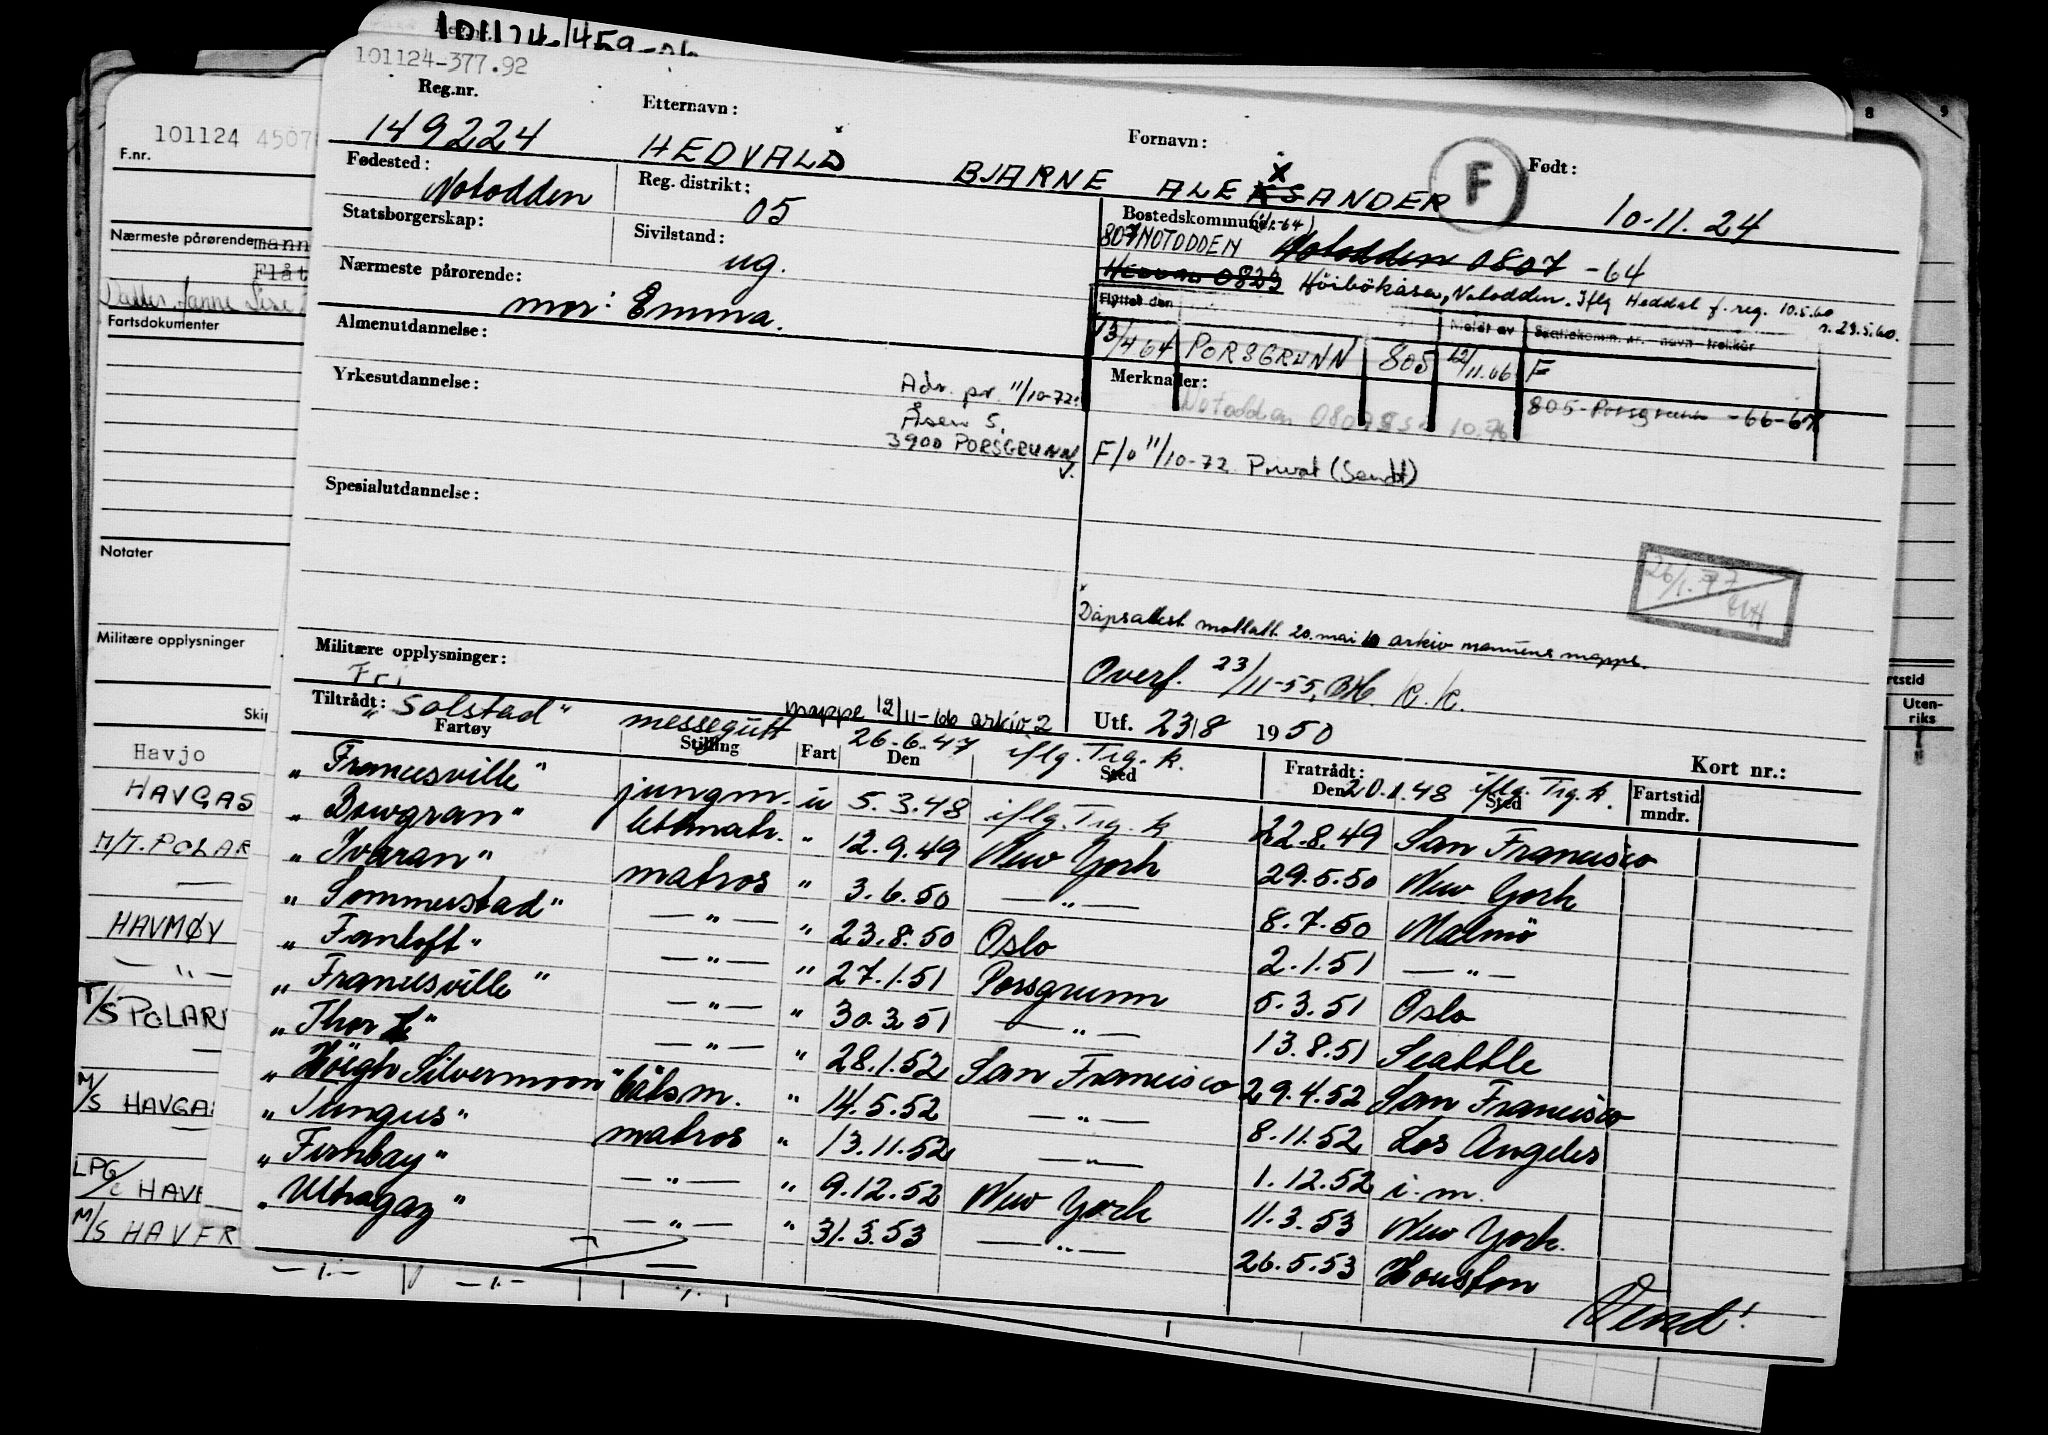 101124 459
101124-377.92
Reg.nr.
149224
Etternavn:
HEDVALD BJARNE ALEXANDER
Fornavn:
F
Født:
10-11.24
Fødested:
Notodden
Reg. distrikt:
05
Statsborgerskap:
Sivilstand:
ug.
Bostedskommune:
807 NOTODDEN Notodden 0807 -64
0823 Höibökåsa, Notodden. Iflg Heddal f. reg. 10.5.60
Nærmeste pårørende:
mor: Emma.
Flyttet den
Meldt av
13/4 64 PORSGRUNN 805 12/11.66 F
805 - Porsgrunn -66-67
Almenutdannelse:
Yrkesutdannelse:
Adr. pr. 11/10-72:
Åsen 5.
3900 PORSGRUNN
Merknader:
Notodden 0807
F/o 11/10-72 Privat (Sendt)
Spesialutdannelse:
26/1.77
Dåpsattest mottatt 20. mai 60 arkiv mannens mappe.
Overf. 23/11-55, BH. K.K.
Militære opplysninger:
Fri
mappe 12/11-66 arkiv 2
Utf. 23/8 1950
Kort nr.:
Tiltrådt:
Fratrådt:
Fartøy Stilling Fart Den Sted Den Sted Fartstid mndr.
"Solstad" messegutt 26.6.47 iflg. Trg. k. 20.1.48 iflg. Trg. k.
"Francisville" jungm. u 5.3.48 iflg. Trg. k 22.8.49 San Francisco
"Bowgran" lettmatr. " 12.9.49 New York 29.5.50 New York
"Ivaran" matros " 3.6.50 — " — 8.7.50 Malmö
"Sommerstad" — " — " 23.8.50 Oslo 2.1.51 — " —
"Fernloft" — " — " 27.1.51 Porsgrunn 5.3.51 Oslo
"Francisville" — " — " 30.3.51 — " — 13.8.51 Seattle
"Thor I" — " — " 28.1.52 San Francisco 29.4.52 San Francisco
"Höegh Silvermoon" båtsm. " 14.5.52 — " — 8.11.52 Los Angeles
"Tungus" matros " 13.11.52 — " — 1.12.52 i.m.
"Fernbay" — " — " 9.12.52 New York 11.3.53 New York.
"Ultragaz" — " — " 31.3.53 — " — 26.5.53 Houston
Vend!
101124 4507
F.nr.
Nærmeste pårørende
mann
Flåt
Fartsdokumenter
Notater
Militære opplysninger
Skip
Havjo
HAVGAS
M/T. POLAR
HAVMØY
— " —
T/S POLAR
M/S HAVGA
LPG/ HAV
M/S HAVFR
8
9
rtstid
Uten-
riks